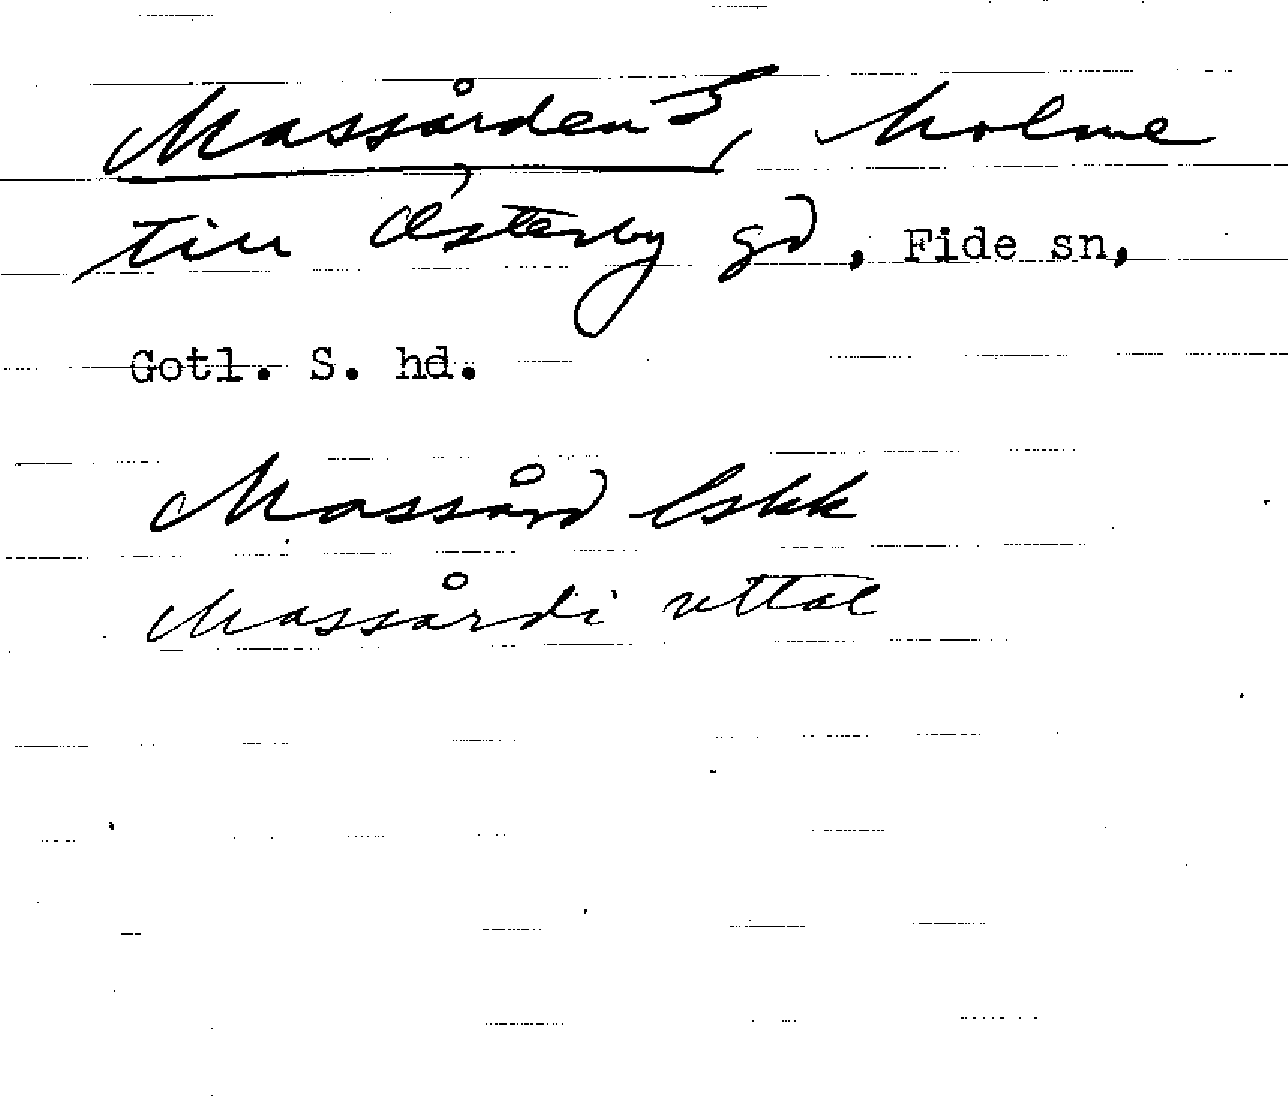 Massården 5, holme
till Österby gd, Fide sn,
Gotl. S. hd.
Massård Eskk
Massårdi uttal